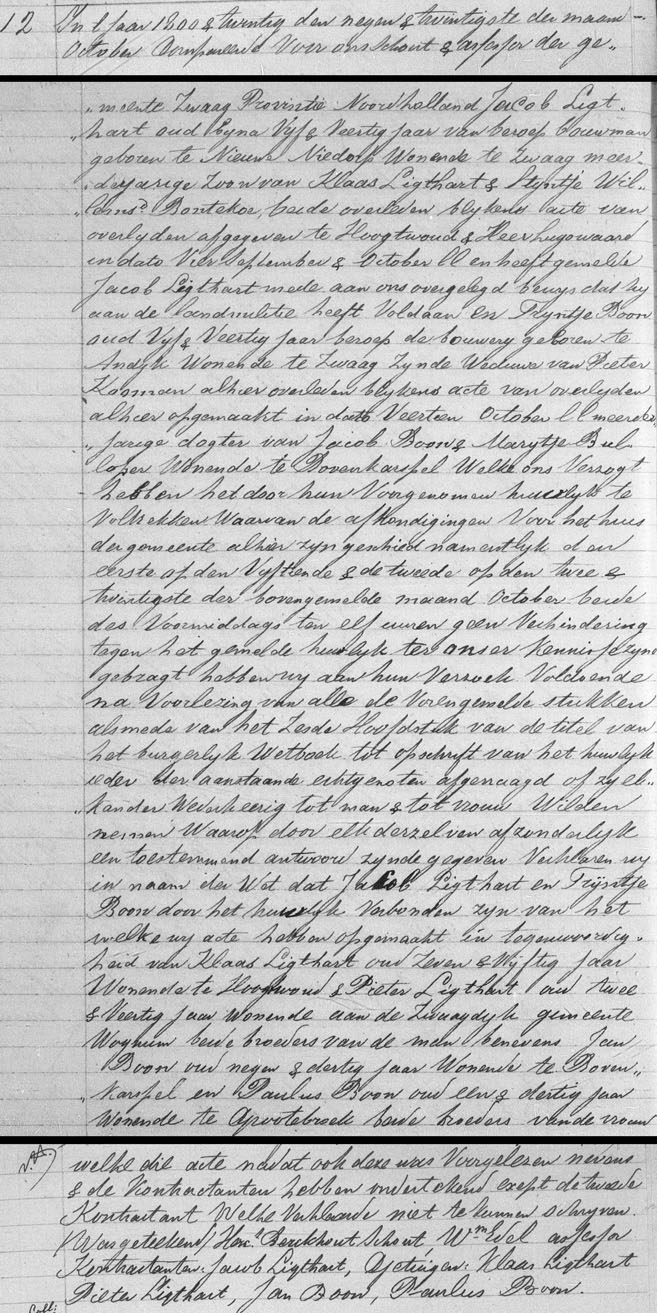 12 In t Jaar 1800 & twintig den negen & twentigste der maam
October Compareerde Voor ons Schout & assessor der ge„
„meente Zwaag Provintie Noordholland Jacob Ligt„
„hart oud byna Vyf & Veertig Jaar van beroep bouwman
geboren te Nieuwe Niedorp Wonende te Zwaag meer„
„derjarige Zoon van Klaas Ligthart & Styntje Wil„
„lemsd. Bontekoe, beide overleden blykens acte van
overlyden afgegeven te Hoogtwoud & Heer hugowaard
in dato Vier September & October ll en heeft gemelde
Jacob Ligthart mede aan ons overgelegd bewys dat hy
aan de landmilitie heeft Voldaan en Tryntje Boon
oud Vyf & Veertig Jaar beroep de bouwery geboren te
Andyk Wonende te Zwaag Zynde Weduwe van Pieter
Kooman alhier overleden blykens acte van overlyden
alhier opgemaakt in dato Veertien October ll meerder„
„jarige dogter van Jacob Boon & Marytje Bul„
loper Wonende te Bovenkarspel Welke ons Verzogt
hebben het door hun Voorgenomen huwlyk te
Voltrekken Waarvan de afkondigingen Voor het huis
der gemeente alhier zyn geschied namentlyk den
eerste op den Vyftiende & de tweede op den twee &
twintigste der bovengemelde maand October beide
des Voormiddags ten elf uuren geen Verhindering
tegen het gemelde huwlyk ter onser Kennisse zynde
gebragt hebben wy aan hun Verzoek Voldoende
na Voorlezing van alle de Vorengemelde stukken
alsmede van het Zesde Hoofdstuk van de titel van
het burgerlyk Wetboek tot opschrift van het huwlyk
ieder der aanstaande echtgenoten afgevraagd of zy el„
„kander Wederkeerig tot man & tot vrouw Wilden
nemen Waarop door elk derzelven afzonderlyk
een toestemmend antwoord zynde gegeven Verklaren wy
in naam der Wet dat Jacob Ligthart en Tryntje
Boon door het huwlyk Verbonden zyn van het
welke wy acte hebben opgemaakt in tegenwoordig„
heid van Klaas Ligthart oud Zeven & Vyftig Jaar
Wonende te Hoogtwoud & Pieter Ligthart oud twee
& Veertig Jaar Wonende aan de Zwaagdyk gemeente
Wognum beide broeders van de man benevens Jan
Boon oud negen & dertig Jaar Wonende te Boven„
„karspel en Paulus Boon oud een & dertig Jaar
Wonende te Grootebroek beide broeders van de vrouw
welke die acte nadat ook deze was Voorgelezen nevens
& de Kontractanten hebben ondertekend exept de tweede
Kontractant Welke Verklaarde niet te kunnen schryven.
/Was geteekend/ Hend. Berckhout Schout Wm Edel assessor
Kontractanten: Jacob Ligthart, Getuigen: Klaas Ligthart
Pieter Ligthart, Jan Boon, Paulus Boon.